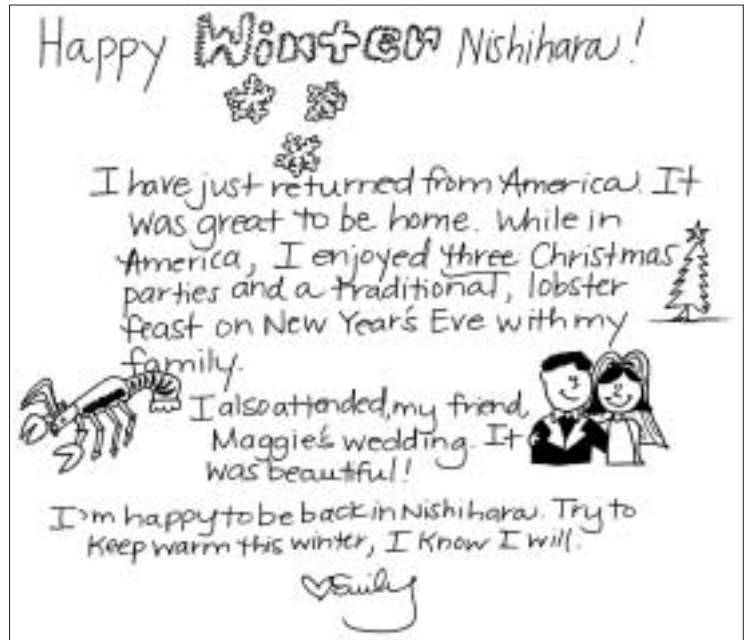 Happy Winter Nishihara!
I have just returned from America. It
was great to be home. While in
America, I enjoyed three Christmas
parties and a traditional, lobster
feast on New Year's Eve with my
family.
I also attended, my friend,
Maggie's wedding. It
was beautiful!
I'm happy to be back in Nishihara. Try to
Keep warm this winter, I know I will.
♡Emily